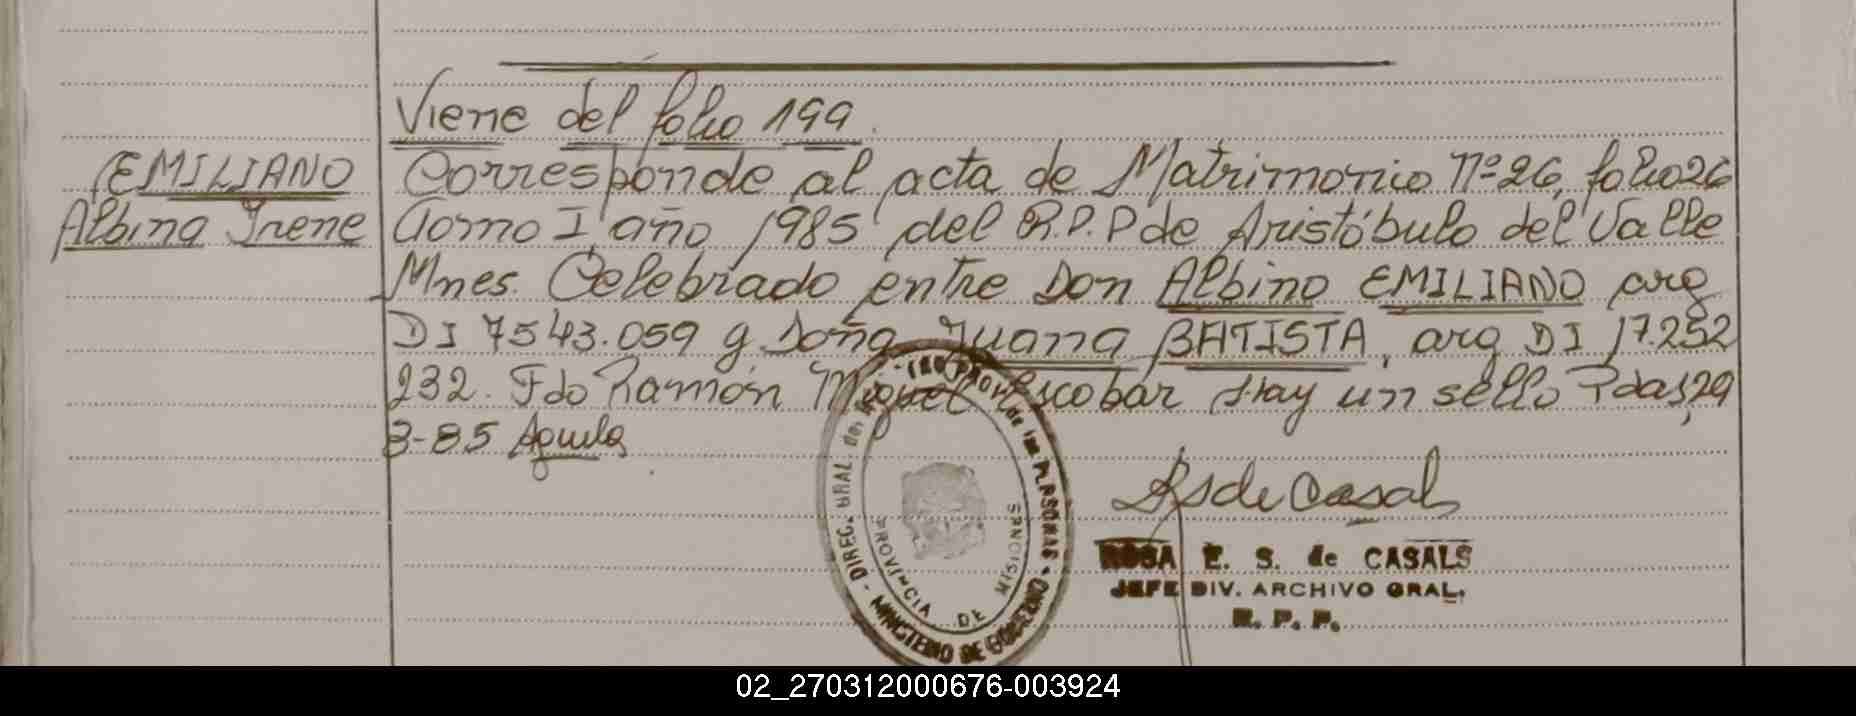 Viene del folio 199.
EMILIANO
Albina Irene
Corresponde al acta de Matrimonio Nº 26, folio 26
Tomo I, año 1985 del R.P.P de Aristóbulo del Valle
Mnes. Celebrado entre Don Albino EMILIANO arg
DI 7543.059 y Doña Juana BATISTA, arg DI 17.252
232. Fdo Ramón Miguel Escobar Hay un sello Pdas, 29
3-85 Aguila
DIREC. GRAL. del REG. PROV. de las PERSONAS - MINISTERIO DE GOBIERNO -
PROVINCIA DE MISIONES
RS de Casals
ROSA E. S. de CASALS
JEFE DIV. ARCHIVO GRAL.
R. P. P.
02_270312000676-003924